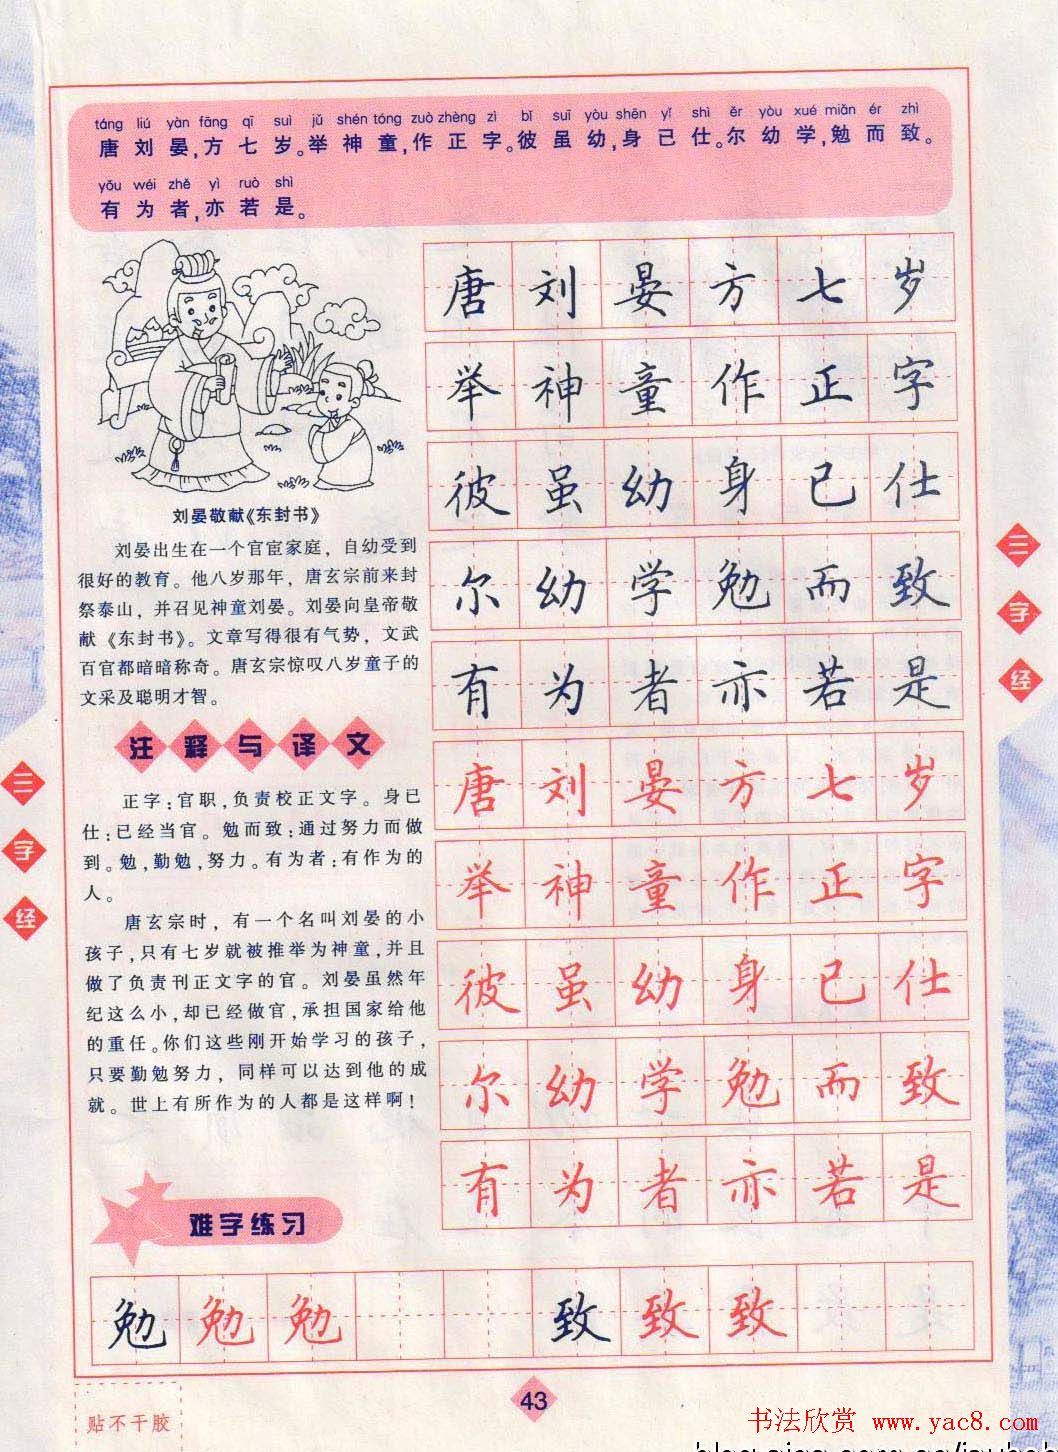 táng liú yàn fāng qī suì jǔ shén tóng zuò zhèng zì bǐ suī yòu shēn yǐ shì ěr yòu xué miǎn ér zhì
唐刘晏,方七岁。举神童,作正字。彼虽幼,身已仕。尔幼学,勉而致。
yǒu wéi zhě yì ruò shì
有为者,亦若是。
刘晏敬献《东封书》
刘晏出生在一个官宦家庭，自幼受到
很好的教育。他八岁那年，唐玄宗前来封
祭泰山，并召见神童刘晏。刘晏向皇帝敬
献《东封书》。文章写得很有气势，文武
百官都暗暗称奇。唐玄宗惊叹八岁童子的
文采及聪明才智。
注释与译文
正字:官职,负责校正文字。身已
仕:已经当官。勉而致:通过努力而做
到。勉,勤勉,努力。有为者:有作为的
人。
唐玄宗时，有一个名叫刘晏的小
孩子,只有七岁就被推举为神童,并且
做了负责刊正文字的官。刘晏虽然年
纪这么小,却已经做官,承担国家给他
的重任。你们这些刚开始学习的孩子,
只要勤勉努力，同样可以达到他的成
就。世上有所作为的人都是这样啊!
唐刘晏方七岁
举神童作正字
彼虽幼身已仕
尔幼学勉而致
有为者亦若是
唐刘晏方七岁
举神童作正字
彼虽幼身已仕
尔幼学勉而致
有为者亦若是
三字经
三字经
难字练习
勉勉勉 致致致
43
贴不干胶
书法欣赏 www.yac8.com